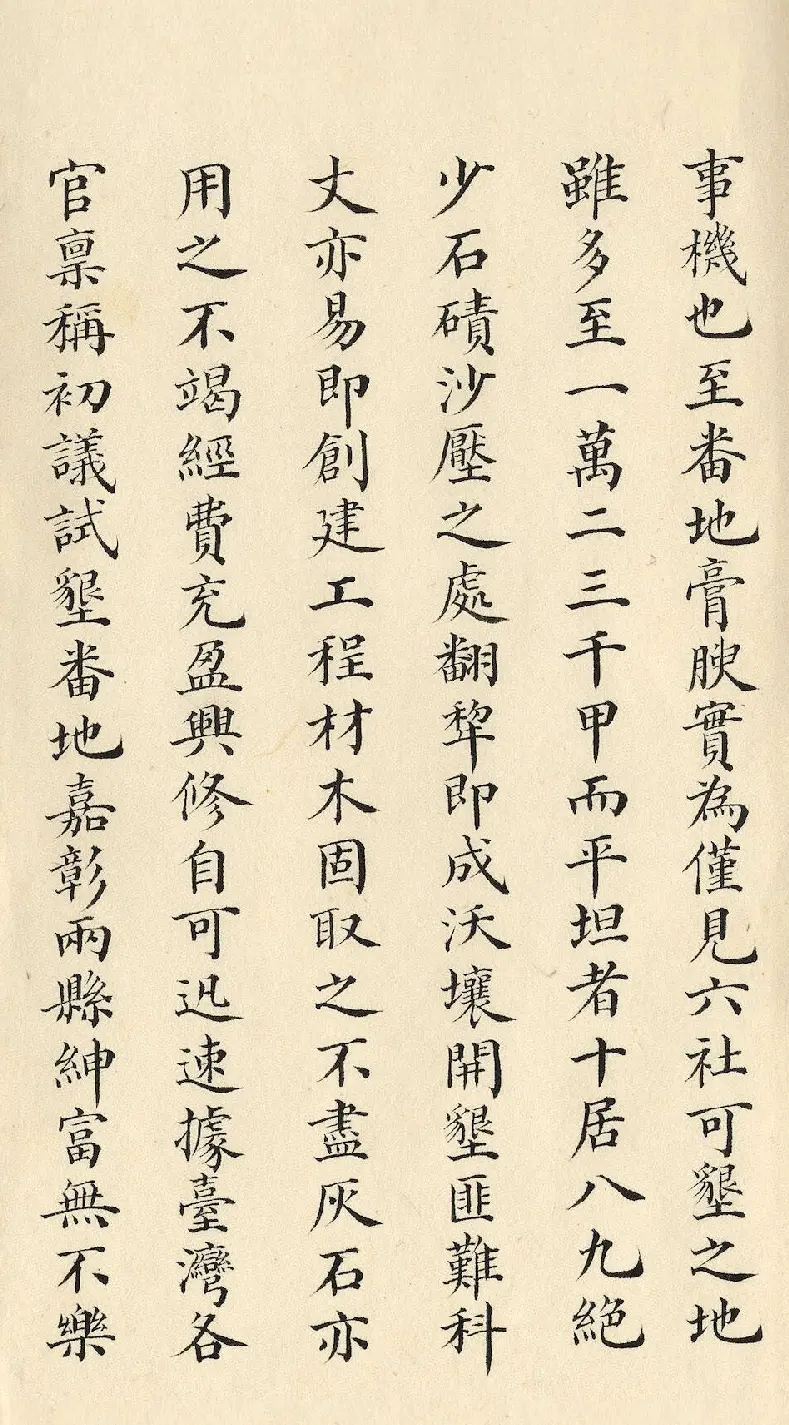 事機也至番地膏腴實為僅見六社可墾之地
雖多至一萬二三千甲而平坦者十居八九絕
少石磧沙壓之處翻犂即成沃壤開墾匪難科
丈亦易即創建工程材木固取之不盡灰石亦
用之不竭經費充盈興修自可迅速據臺灣各
官稟稱初議試墾番地嘉彰兩縣紳富無不樂